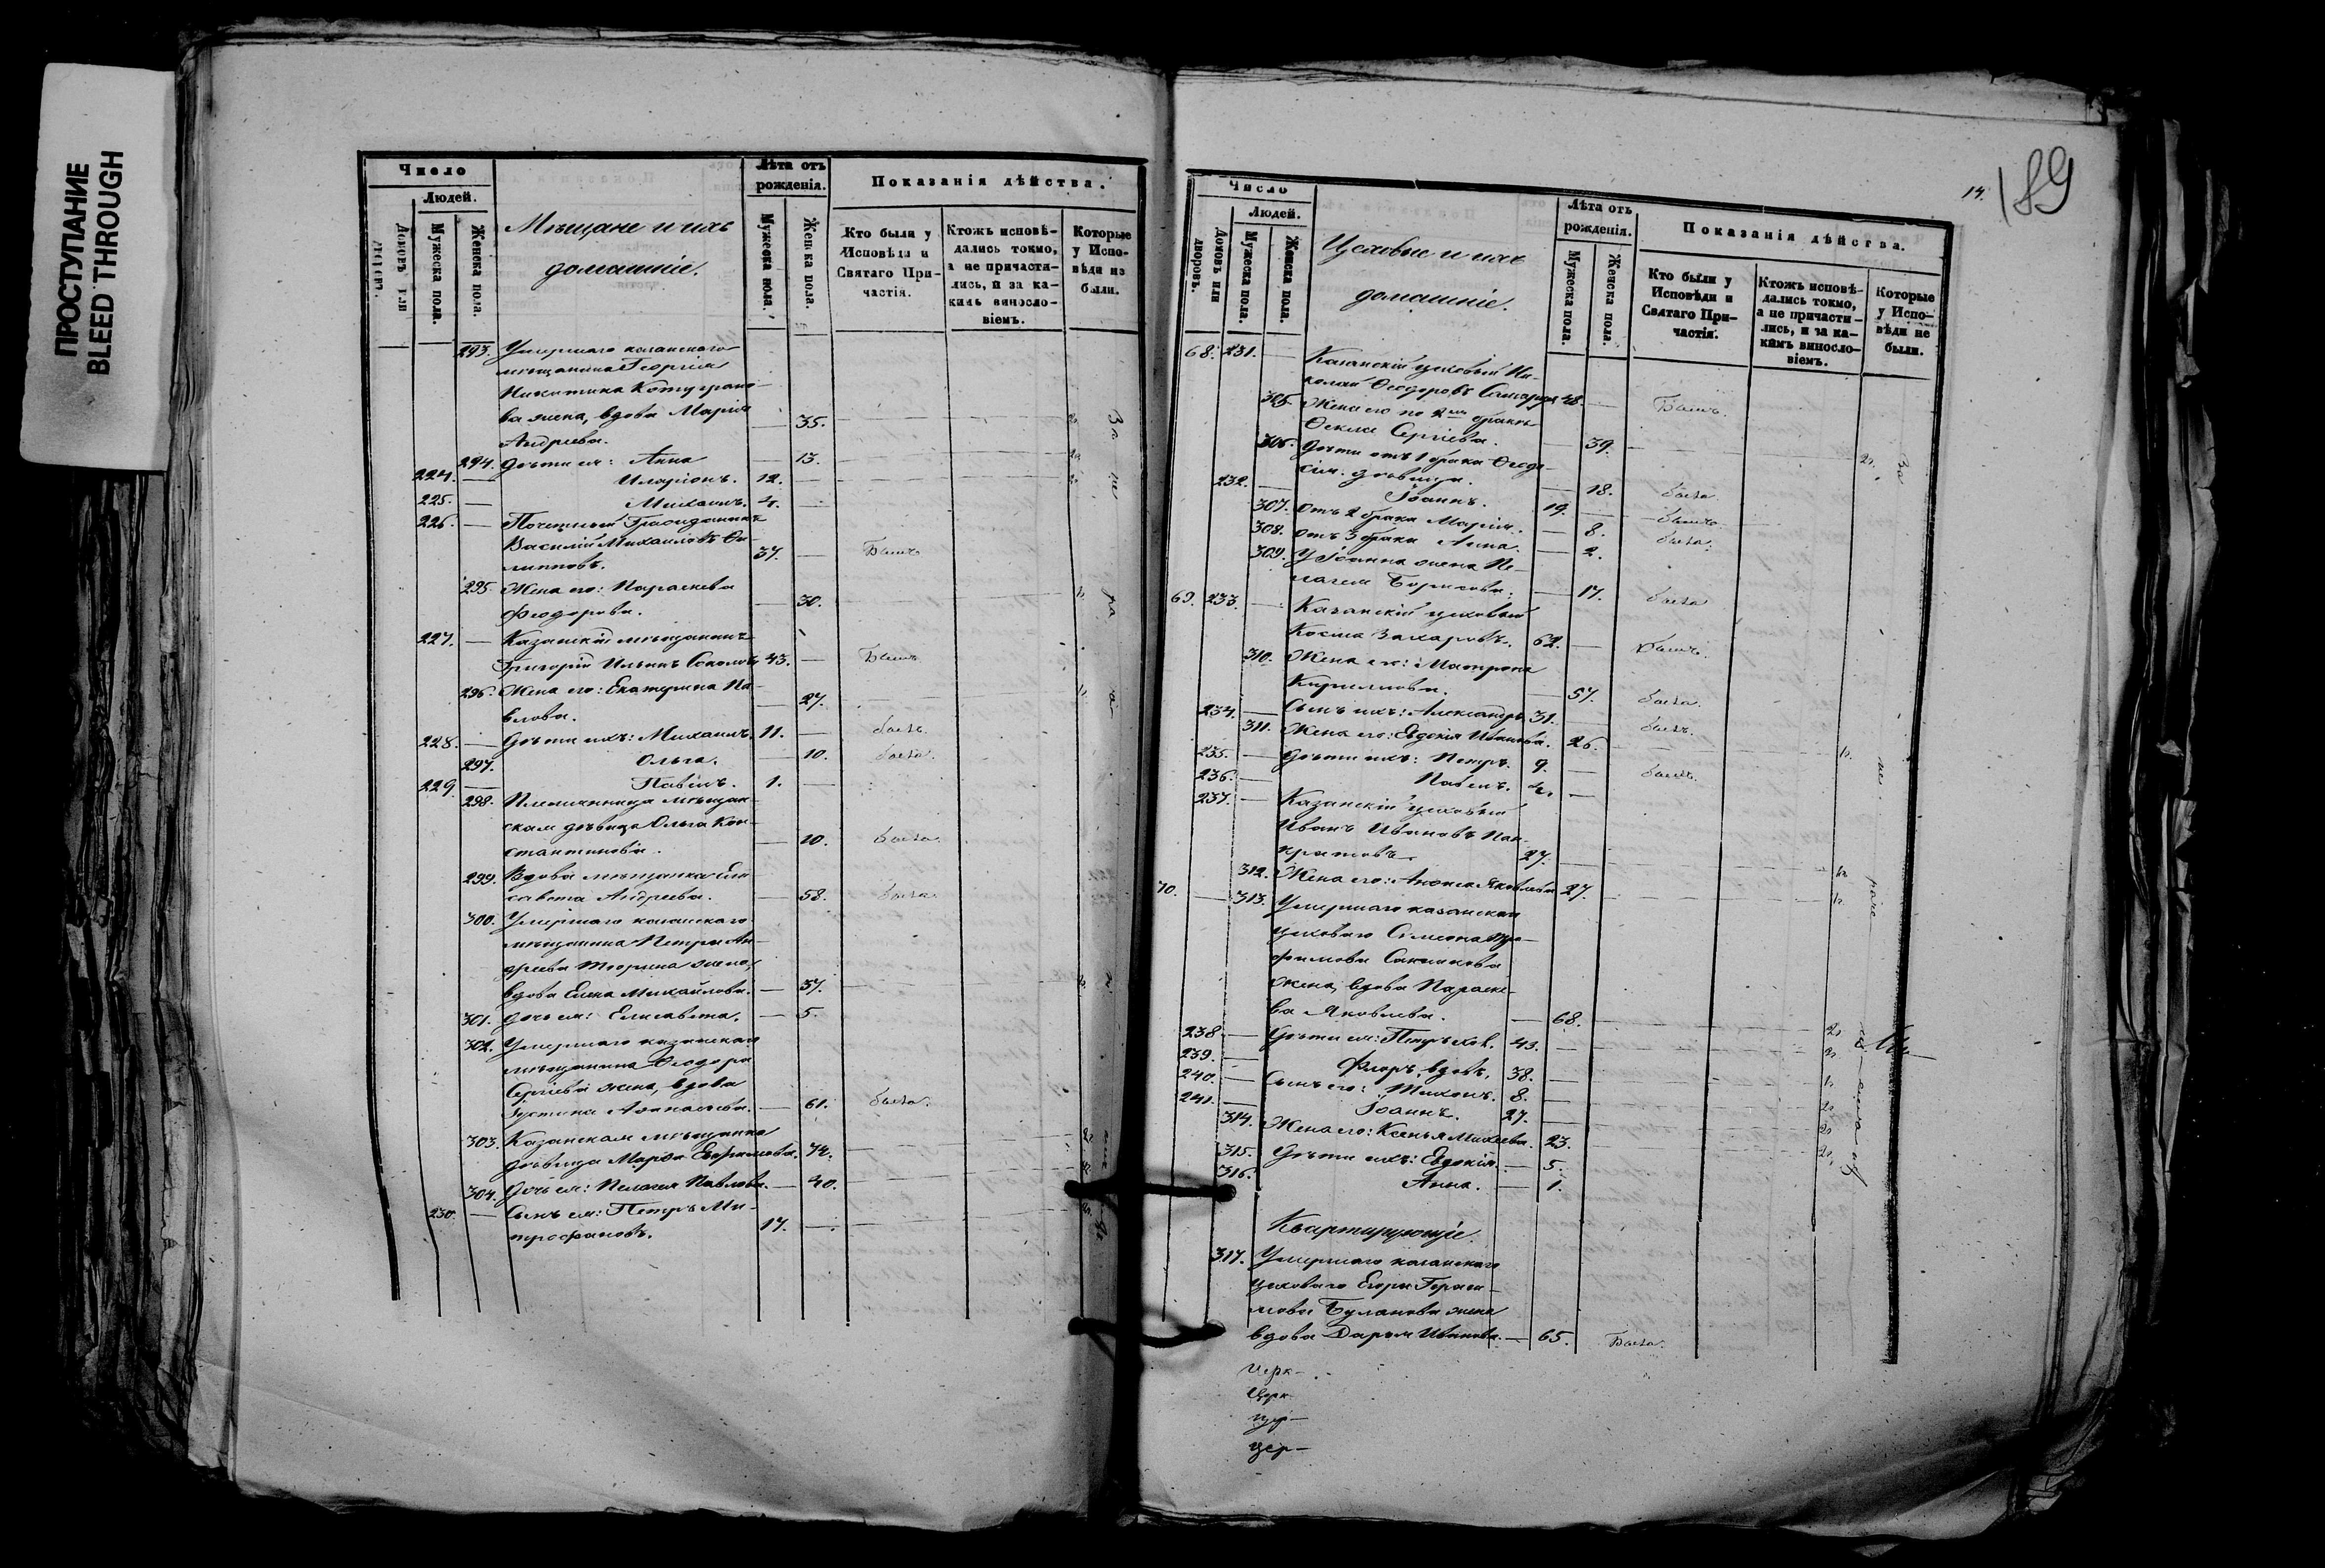 ПРОСТУПАНИЕ
BLEED THROUGH
Число
Людей.
Домовъ или дворовъ.
Мужеска пола.
Женска пола.
Мѣщане и ихъ
домашніе.
Лѣта отъ
рожденія.
Мужеска пола.
Женска пола.
Показанія дѣйства.
Кто были у
Исповѣди и
Святаго При-
частія.
Ктожъ исповѣ-
дались токмо,
а не причасти-
лись, и за ка-
кимъ винosло-
віемъ.
Которые
у Испо-
вѣди не
были.
293. Умершаго казанскаго
мѣщанина Георгія
Никитина
ва жена, вдова Марія
Андреева. — 35.
294. Дѣти ея: Анна — 13.
224. — Иларіонъ. 12. —
225. — Михаилъ. 4. —
226. — Почетный Гражданинъ
Василій Михайловъ Фи-
липповъ. 37. — Былъ
295. Жена его: Параскева
Феодорова. — 30.
227. — Казанскій мѣщанинъ
Григорій Ильинъ Соколовъ 43. — Былъ
296. Жена его: Екатерина Па-
влова. — 27.
228. — Дѣти ихъ: Михаилъ. 11. — былъ.
297. Ольга. — 10. была.
229. — Павелъ. 1. —
298. Племянница мѣщан-
ская дѣвица Ольга Кон-
стантинова. — 20. была.
299. Вдова мѣщанка Ели-
савета Андреева. — 58. была.
300. Умершаго казанскаго
мѣщанина Петра Ан-
дреева жена,
вдова Елена Михайлова. — 37.
301. Дочь ея: Елисавета. — 5.
302. Умершаго казанскаго
мѣщанина Феодора
Сергѣева жена, вдова
Устина Афанасьева. — 61. была.
303. Казанская мѣщанка
дѣвица Марѳа Ефимова. 74. —
304. Дочь ея: Пелагея Павлова. — 40.
230. — Сынъ ея: Петръ Ми-
трофановъ. 17. —
14. 189
Число
Людей.
Домовъ или дворовъ.
Мужеска пола.
Женска пола.
Цеховые и ихъ
домашніе.
Лѣта отъ
рожденія.
Мужеска пола.
Женска пола.
Показанія дѣйства.
Кто были у
Исповѣди и
Святаго При-
частія.
Ктожъ исповѣ-
дались токмо,
а не причасти-
лись, и за ка-
кимъ винosло-
віемъ.
Которые
у Испо-
вѣди не
были.
68. 231. — Казанскій цеховый Ни-
колай Феодоровъ 48. — Былъ.
305. Жена его по 2му браку
Фекла Сергіева. — 39.
306. Дѣти отъ 1 брака Феодо-
сія дѣвица. — 18. была.
232. — Іоаннъ. 19. — былъ.
307. Отъ 2 брака Марія. — 8. была.
308. Отъ 3 брака Анна. — 2.
309. У Іоанна жена Пе-
лагея Борисова. — 17. была
69. 233. — Казанскій цеховый
Косма Захаровъ. 62. — былъ.
310. Жена его: Матрона
Кириллова. — 57. была.
234. — Сынъ ихъ: Александръ 31. — былъ.
311. Жена его: Евдокія Иванова. 26.
235. — Дѣти ихъ: Петръ. 9. — былъ.
236. — Павелъ. 4. —
237. — Казанскій цеховый
Иванъ Ивановъ Пан-
кратовъ. 27.
312. Жена его: Яковлева 27.
70. — 313. Умершаго казанскаго
цеховаго Симеона Тро-
фимова
жена, вдова Параске-
ва Яковлева. — 68.
238 — Дѣти ея: Петръ хол. 43. —
239. — Флоръ, вдовъ. 38. —
240. — Сынъ его: Тихонъ. 8. —
241. — Іоаннъ. 27. —
314. Жена его: Ксенья Михеева. 23.
315. Дѣти ихъ: Евдокія. — 5.
316. Анна. — 1.
Квартирующіе.
317. Умершаго казанскаго
цеховаго Егора Гераси-
мова Буланова жена
вдова Дарья Иванова. — 65. Была.
Церк-
Церк-
цер-
цер-